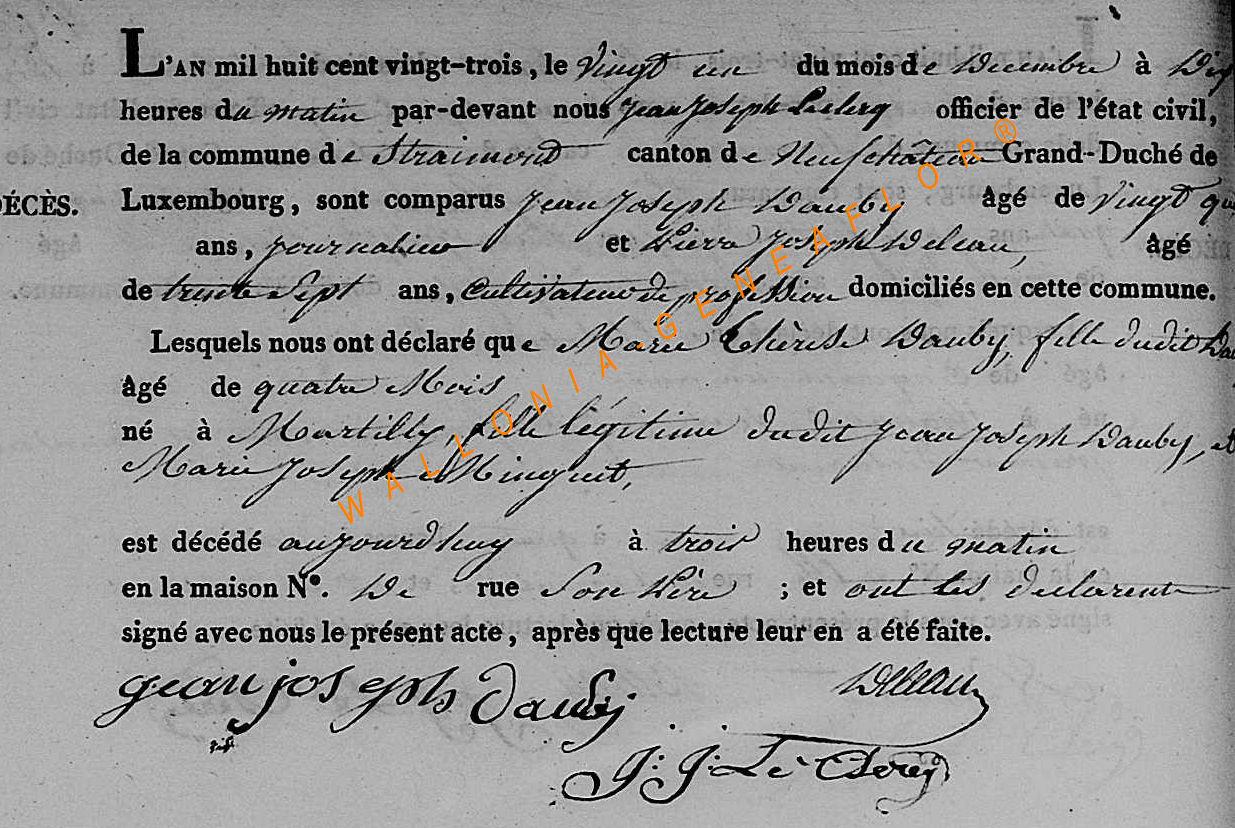 L'AN mil huit cent vingt-trois, le Vingt un du mois de Decembre à Dix
heures du matin par-devant nous Jean Joseph Leclerq officier de l'état civil,
de la commune de Straimont canton de Neufchâteau Grand-Duché de
DÉCÈS. Luxembourg, sont comparus Jean Joseph Dauby âgé de Vingt
ans, journalier et Pierre Joseph Deleau, âgé
de trente Sept ans, Cultivateur de profession domiciliés en cette commune.
Lesquels nous ont déclaré que Marie Thèrèse Dauby, fille dudit
âgé de quatre Mois
né à Martilly, fille légitime dudit Jean Joseph Dauby, et
Marie Joseph Minguet,
est décédé aujourdhuy à trois heures du matin
en la maison N°. De rue Son Père ; et ont les declarent
signé avec nous le présent acte, après que lecture leur en a été faite.
jean joseph dauby Deleau
J: J: Le Clerq
WALLONIA-GENEAFLOR®